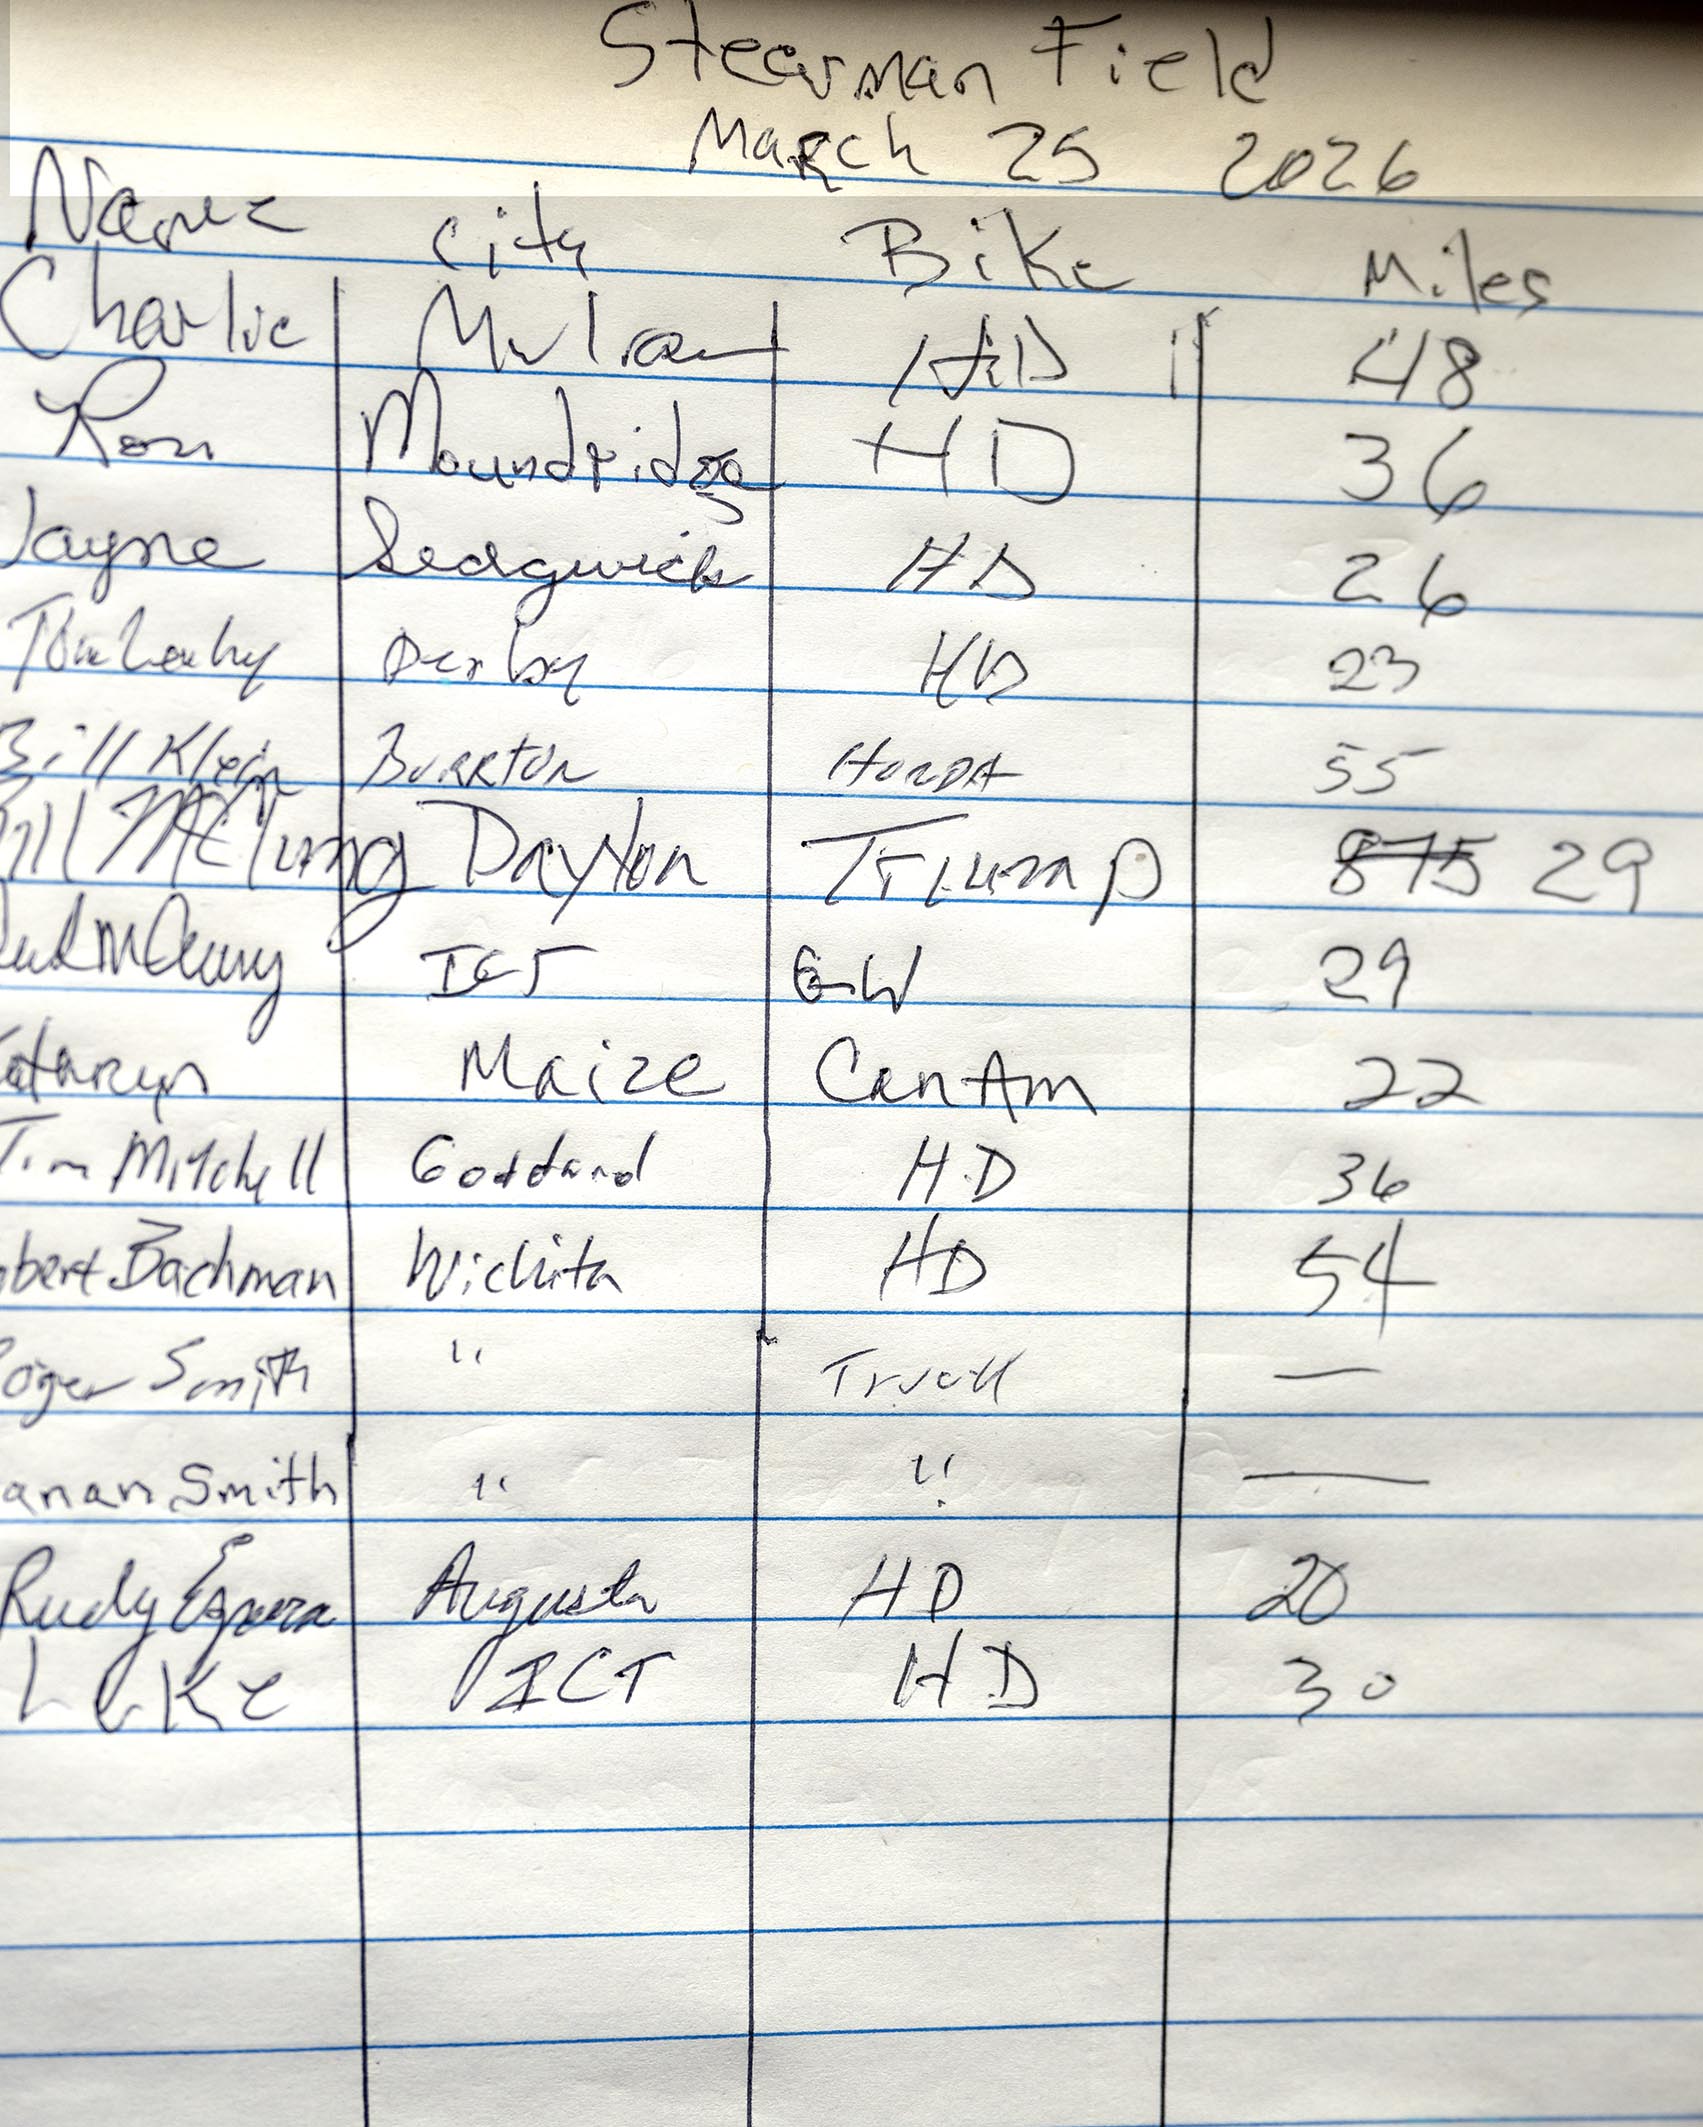 Stearman Field
March 25 2026
Name City Bike Miles
Charlie Mulvane HD 48
Ron Moundridge HD 36
Jayne Sedgwick HD 26
Tom Derby HD 23
Bill Klein BURRTON HONDA 55
Bill McClung Dayton Triump 875 29
ICT GW 29
Kathryn Maize CanAm 22
Tim Mitchell Goddard H.D 36
obert Bachman Wichita HD 54
Roger Smith " Truck —
anan Smith " " —
Rudy Augusta HD 20
Luke ICT HD 30